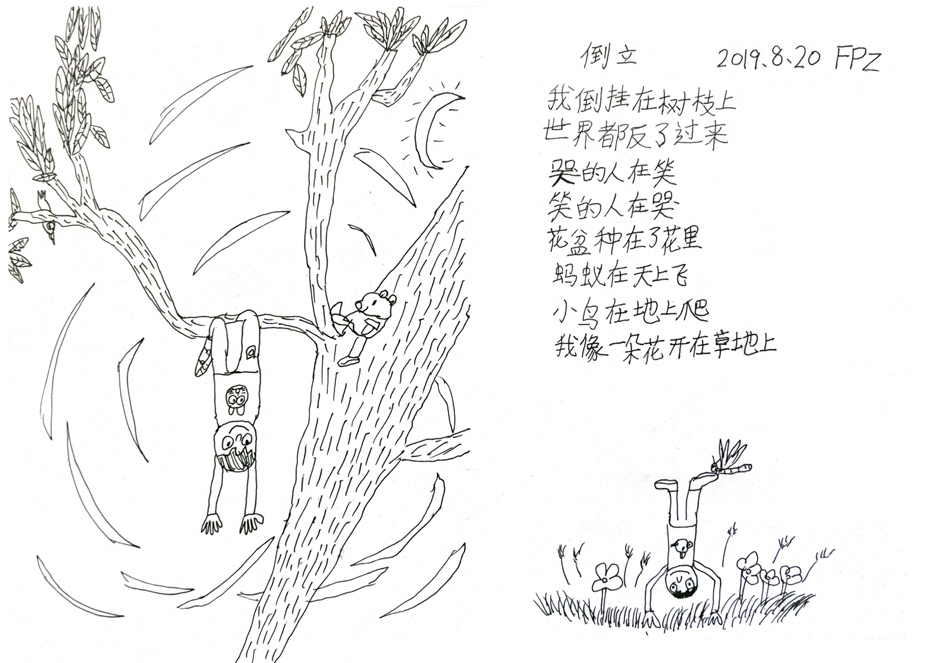 倒立 2019.8.20 FPZ
我倒挂在树枝上
世界都反了过来
哭的人在笑
笑的人在哭
花盆种在了花里
蚂蚁在天上飞
小鸟在地上爬
我像一朵花开在草地上